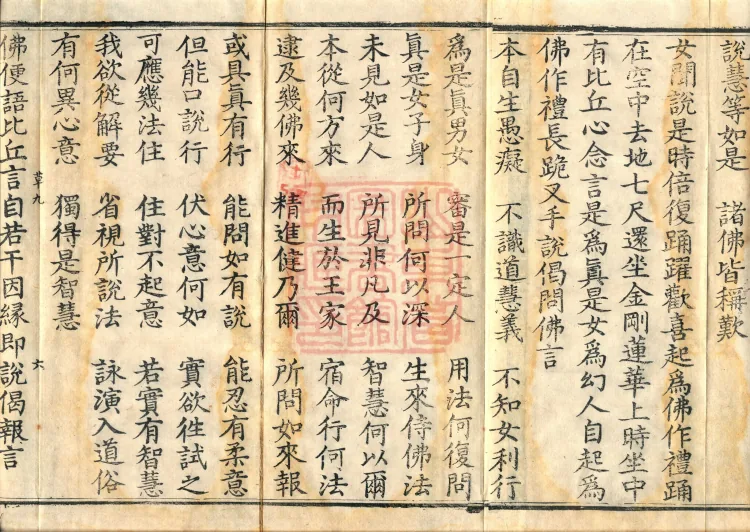 說慧等如是　諸佛皆稱歎
女聞說是時倍復踊躍歡喜起爲佛作禮踊
在空中去地七尺還坐金剛蓮華上時坐中
有比丘心念言是爲眞是女爲幻人自起爲
佛作禮長跪叉手說偈問佛言
本自生愚癡　不識道慧義　不知女利行
爲是眞男女　審是一定人　用法何復問
眞是女子身　所問何以深　生來侍佛法
未見如是人　所見非凡及　智慧何以爾
本從何方來　而生於王家　宿命行何法
逮及幾佛來　精進健乃爾　所問如來報
或具眞有行　能問如有說　能忍有柔意
但能口說行　伏心意何如　實欲徃試之
可應幾法住　住對不起意　若實有智慧
我欲從解要　省視所說法　詠演入道俗
有何異心意　獨得是智慧
草九　六
佛便語比丘言自若干因緣即說偈報言